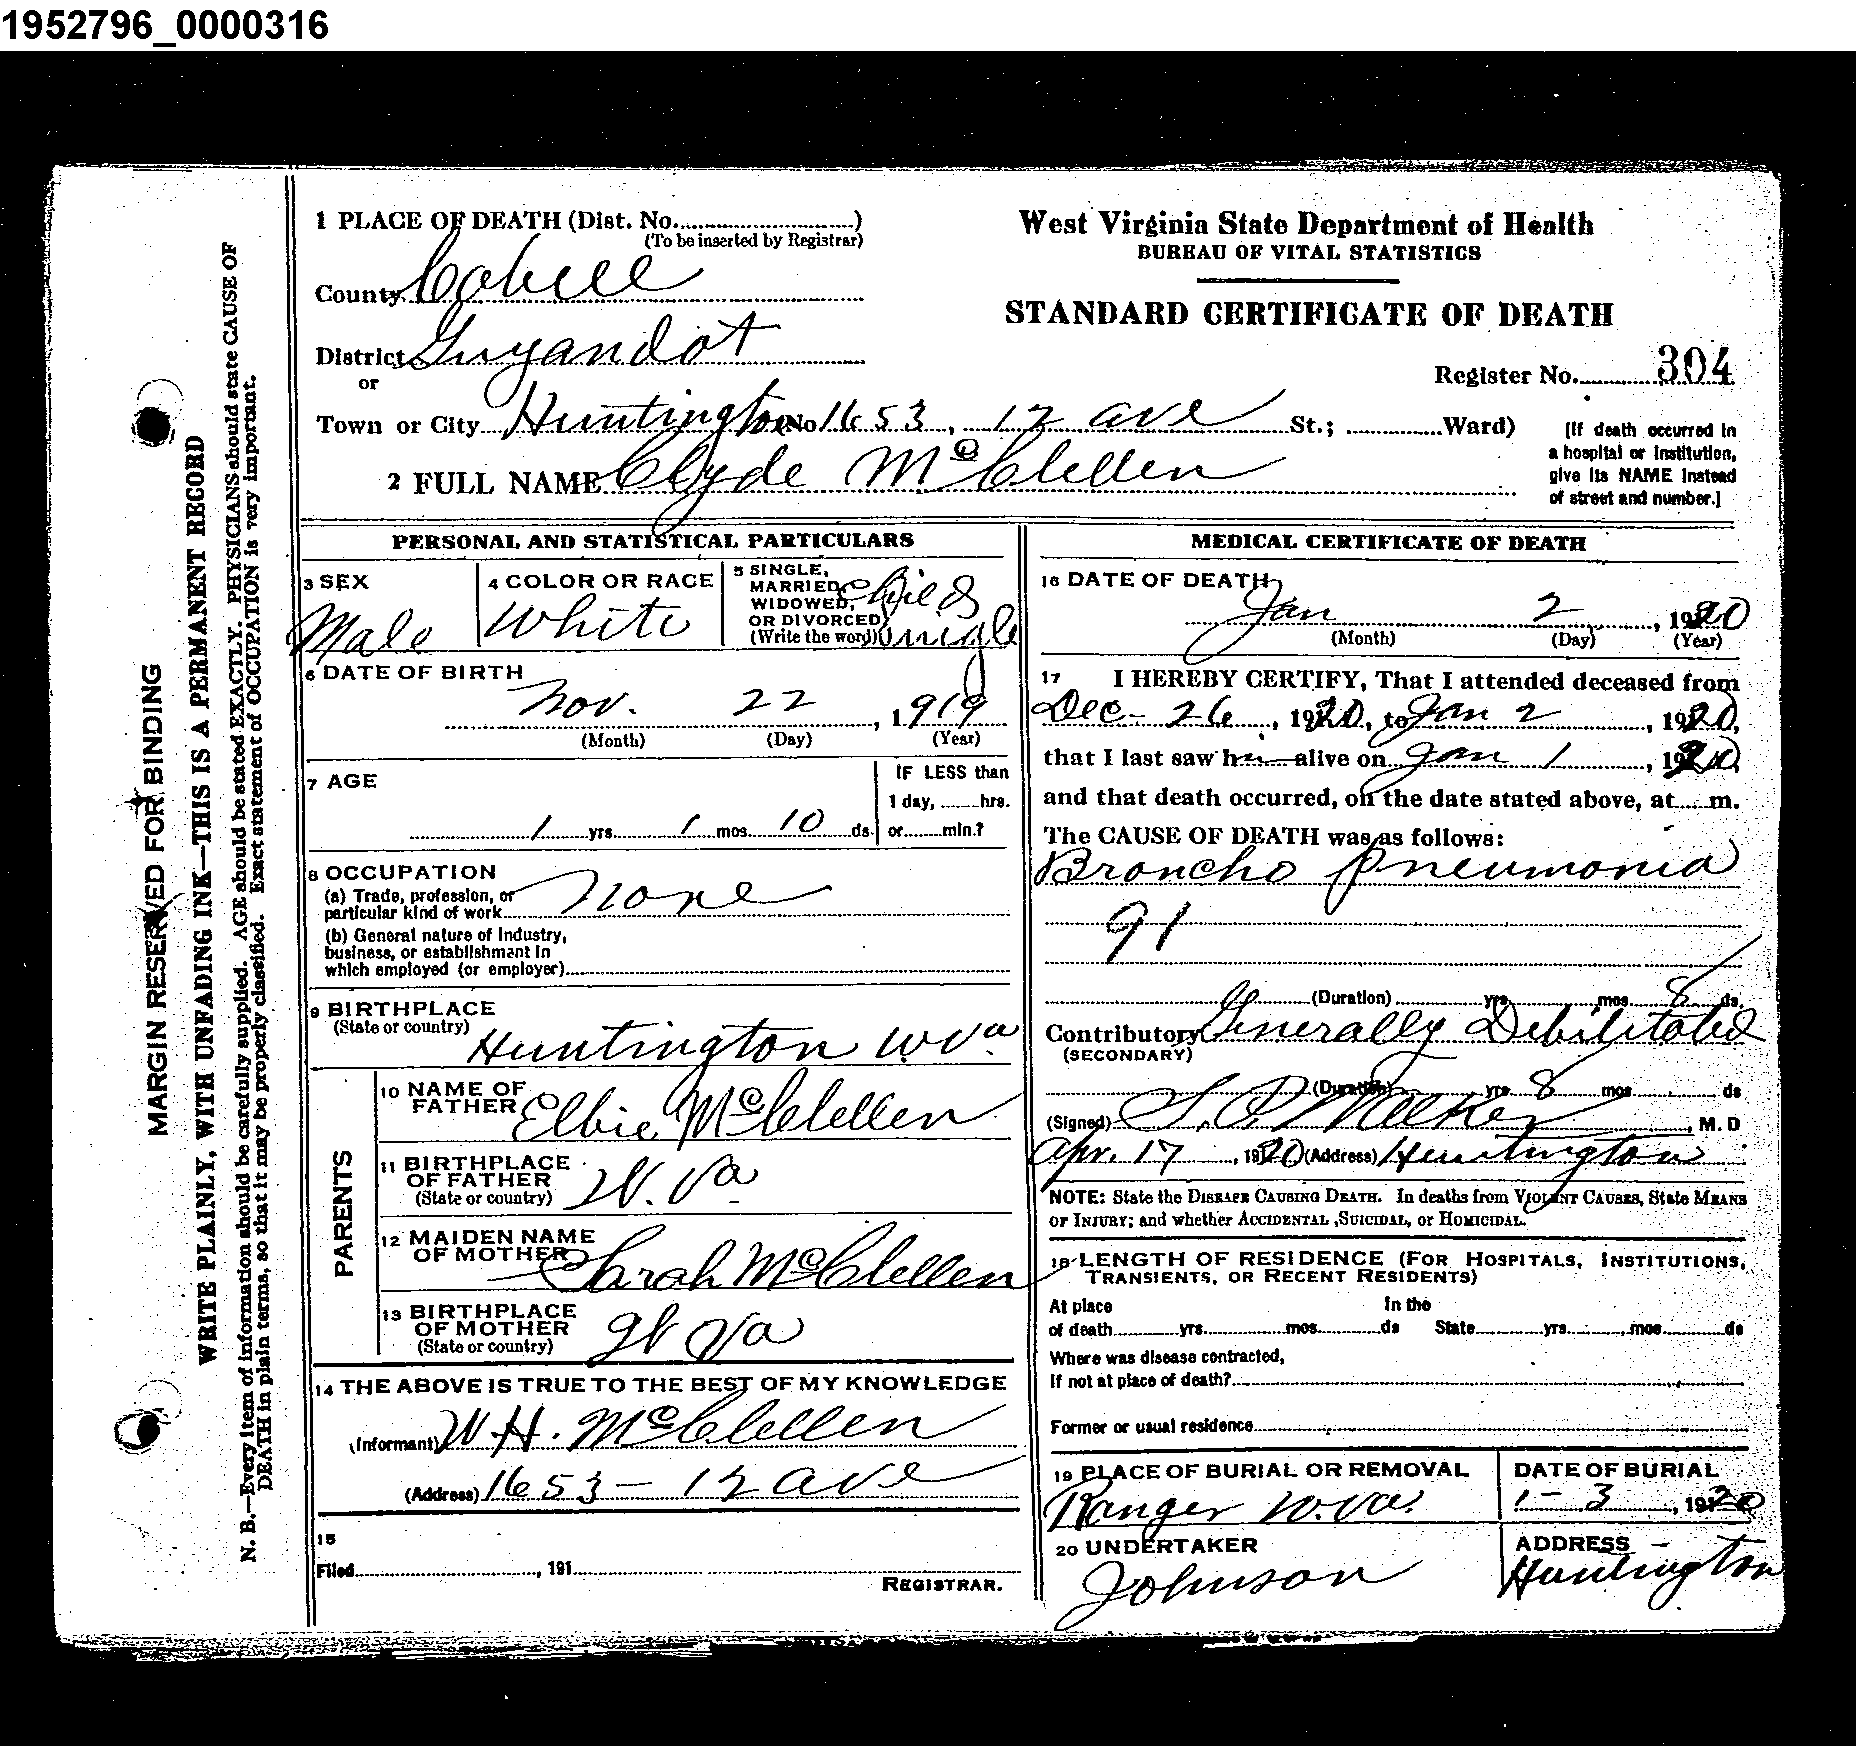 1952796_0000316
1 PLACE OF DEATH (Dist. No. )
(To be inserted by Registrar)
County Cabell
District Guyandot
or
Town or City Huntington No 1653, 12 ave St.; Ward)
2 FULL NAME Clyde McClellen
West Virginia State Department of Health
BUREAU OF VITAL STATISTICS
STANDARD CERTIFICATE OF DEATH
Register No. 304
[If death occurred in
a hospital or institution,
give its NAME instead
of street and number.]
MARGIN RESERVED FOR BINDING
WRITE PLAINLY, WITH UNFADING INK—THIS IS A PERMANENT RECORD
N. B.—Every item of information should be carefully supplied. AGE should be stated EXACTLY. PHYSICIANS should state CAUSE OF
DEATH in plain terms, so that it may be properly classified. Exact statement of OCCUPATION is very important.
PERSONAL AND STATISTICAL PARTICULARS
3 SEX
Male
4 COLOR OR RACE
White
5 SINGLE,
MARRIED,
WIDOWED,
OR DIVORCED
(Write the word)
Child
Single
6 DATE OF BIRTH
Nov. 22, 1919
(Month) (Day) (Year)
7 AGE
1 yrs. 1 mos 10 ds.
IF LESS than
1 day, hrs.
or min.?
8 OCCUPATION
(a) Trade, profession, or
particular kind of work None
(b) General nature of Industry,
business, or establishment in
which employed (or employer)
9 BIRTHPLACE
(State or country)
Huntington W Va.
PARENTS
10 NAME OF
FATHER Elbie McClellen
11 BIRTHPLACE
OF FATHER
(State or country) W. Va
12 MAIDEN NAME
OF MOTHER Sarah McClellen
13 BIRTHPLACE
OF MOTHER
(State or country) W Va
14 THE ABOVE IS TRUE TO THE BEST OF MY KNOWLEDGE
(Informant) W. H. McClellen
(Address) 1653 – 12 ave
15
Filed , 191
REGISTRAR.
MEDICAL CERTIFICATE OF DEATH
16 DATE OF DEATH
Jan 2, 1920
(Month) (Day) (Year)
17 I HEREBY CERTIFY, That I attended deceased from
Dec - 26, 1920, to Jan 2, 1920,
that I last saw him alive on Jan 1, 1920,
and that death occurred, on the date stated above, at m.
The CAUSE OF DEATH was as follows:
Broncho Pneumonia
91
(Duration) yrs mos 8 ds.
Contributory Generally Debilitated
(SECONDARY)
(Duration) yrs 8 mos ds
(Signed) Walker, M. D
Apr. 17, 1920 (Address) Huntington
NOTE: State the DISEASE CAUSING DEATH. In deaths from VIOLENT CAUSES, State MEANS
OF INJURY; and whether ACCIDENTAL, SUICIDAL, or HOMICIDAL.
18 LENGTH OF RESIDENCE (FOR HOSPITALS, INSTITUTIONS,
TRANSIENTS, OR RECENT RESIDENTS)
At place In the
of death yrs. mos. ds State yrs. mos. ds
Where was disease contracted,
If not at place of death?
Former or usual residence
19 PLACE OF BURIAL OR REMOVAL
Ranger W. Va.
DATE OF BURIAL
1 – 3, 1920
20 UNDERTAKER
Johnson
ADDRESS
Huntington